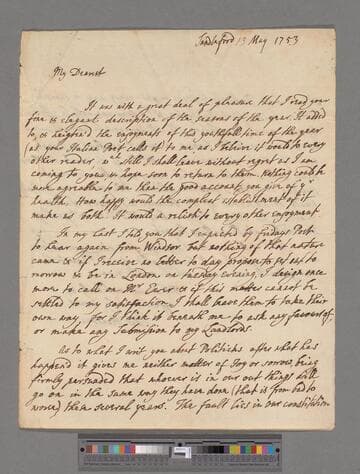 Sandleford 13 May 1753
My Dearest
It was with a great deal of pleasure that I read your
fine & elegant description of the season of the year. It added
to, & heighten'd the enjoyments of this youthfull time of the year
(as your Italian Poet calls it) to me as I believe it would to every
other reader wch. still I shall leave without regret as I am
coming to you in hope soon to return to them. Nothing could be
more agreable to me than the good account you give of yr
health. How happy would the compleat establishment of it
make us both. It would a relish to every other enjoyment
In my last I told you that I expected by fridays Post
to hear again from Windsor but nothing of that nature
came & if I receive no letter to day propose to set out to
morrow & be in London on tuesday evening, I design once
more to call on Mr Ever & if this matter cannot be
settled to my satisfaction I shall leave them to take their
own way, for I think it beneath me to ask any favour of,
or make any Submission to my Landlords
As to what I writ you about Politicks after what has
happend it gives me neither matter of Joy or sorrow, being
firmly perswaded that whoever is in or out things will
go on in the same way they have done (that is from bad to
worse) these several years. The fault lies in our constitution